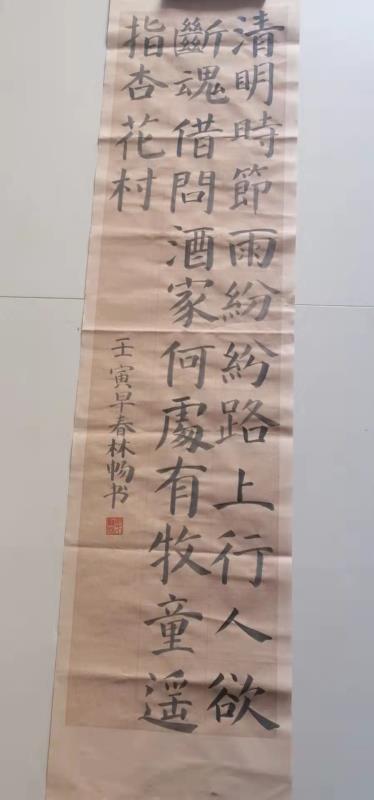 清明時節雨紛紛路上行人欲
斷魂借問酒家何處有牧童遥
指杏花村
壬寅早春林畅书